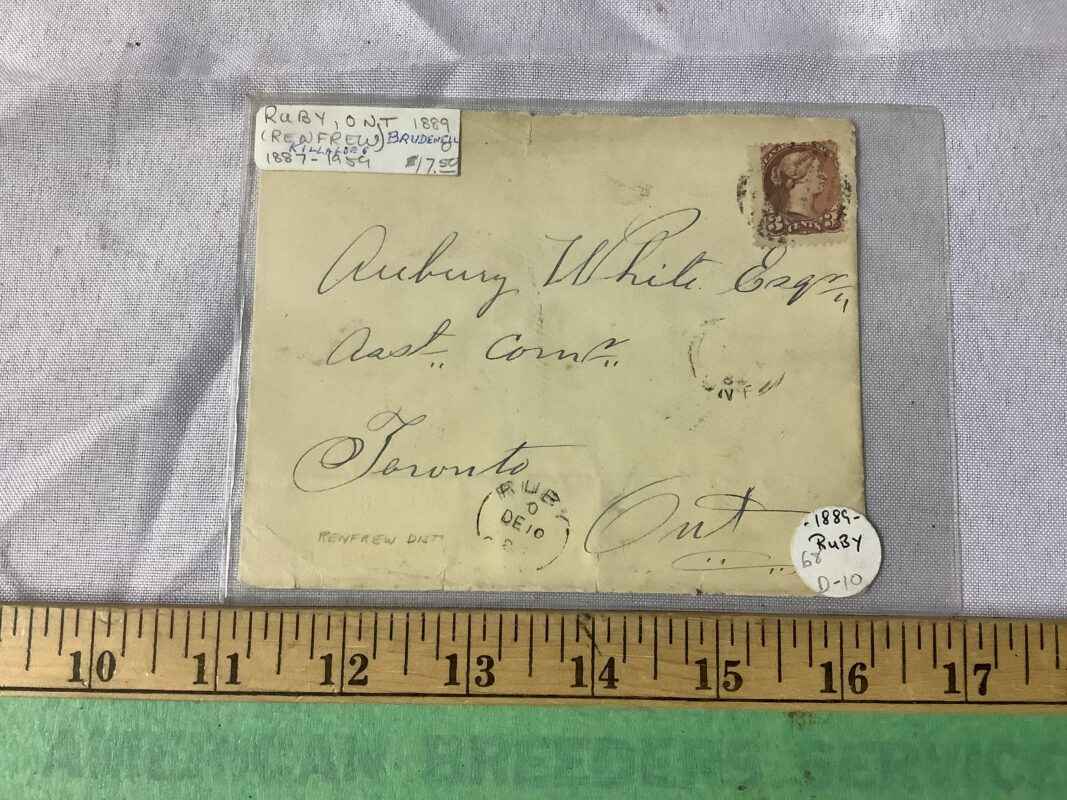 RUBY, ONT 1889
(RENFREW) BRUDENELL
KILLALOE
1887-1959 $17.50
3 CENTS 3
Aubury White Esqr
Asst. Comr.
Toronto
Ont
RUBY
DE 10
RENFREW ONT
-1889-
RUBY
68
D-10
10 11 12 13 14 15 16 17
AMERICAN BREEDERS SERVICE